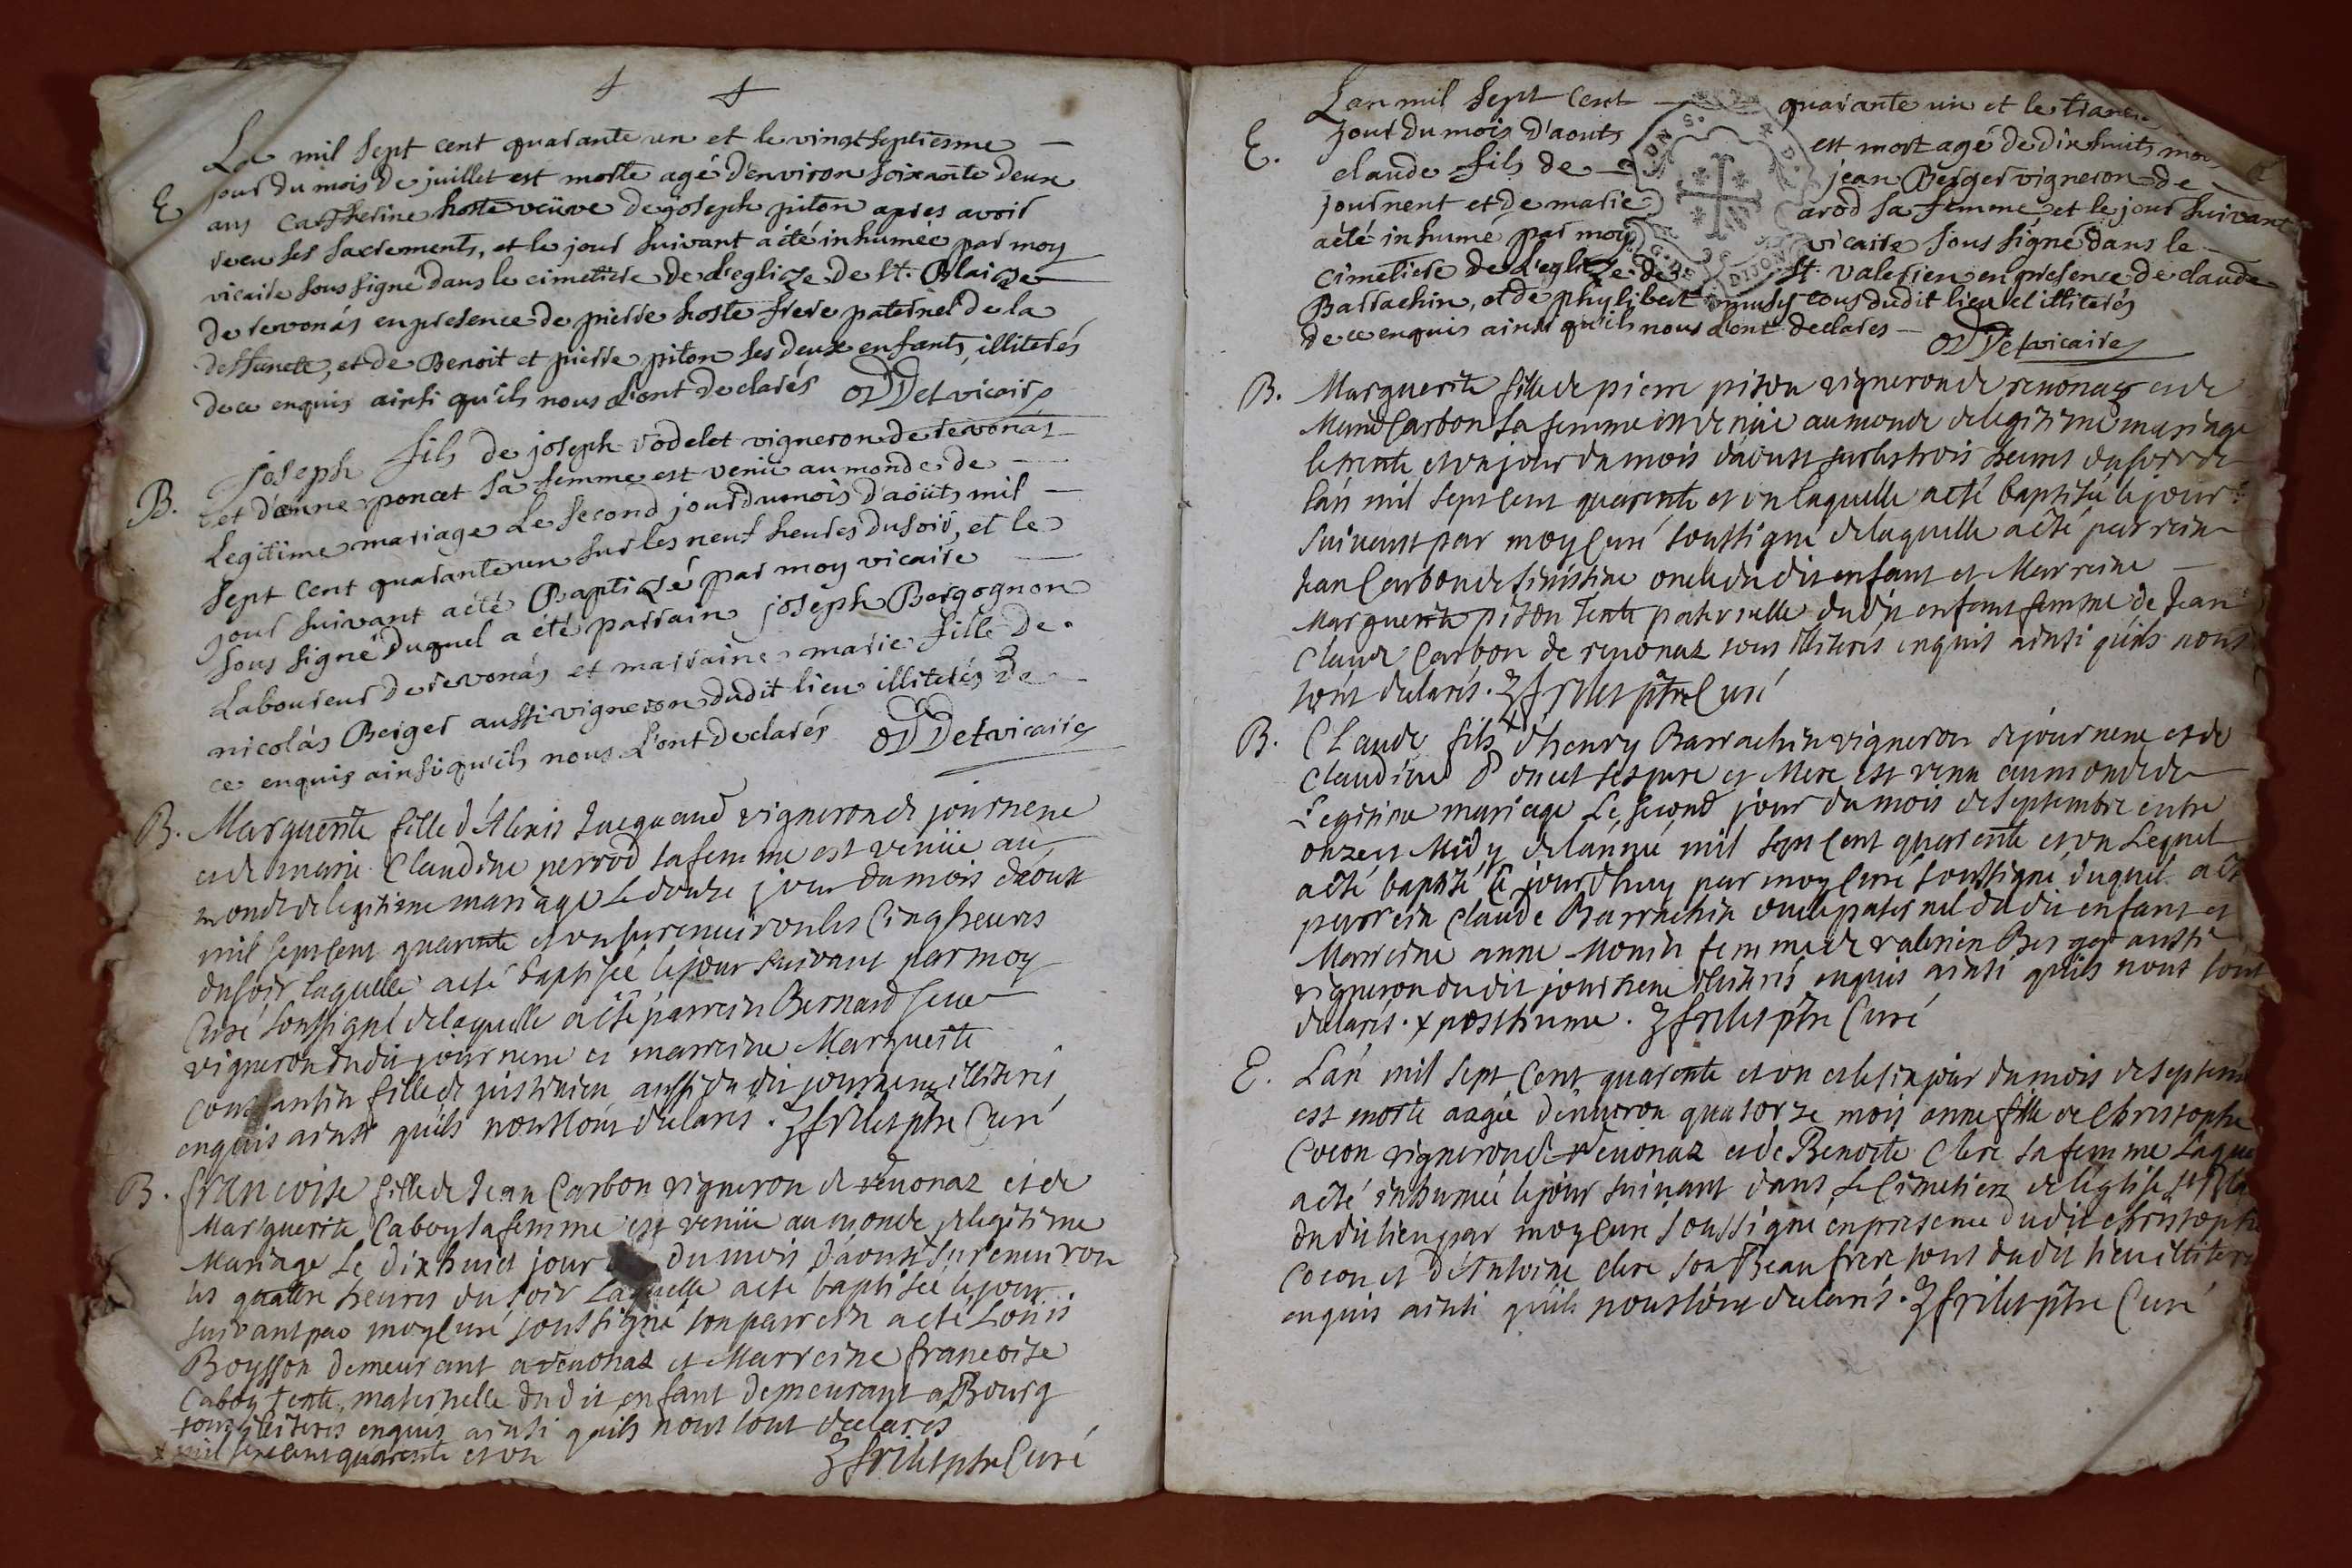 La mil sept cent quarante un et le vingt septiesme
E jour du mois de juillet est morte agé d'environ soixante deux
ans Catherine hoste veüve de joseph piton apres avoir
receu ses sacrements, et le jour suivant a été inhumée par moy
vicaire sous signé dans le cimetiere de l'eglize de st. Blaize
de revonás en presence de pierre hoste frere paternel de la
deffuncte, et de Benoit et pierre piton ses deux enfants, illiterés
de ce enquis ainsi qu'ils nous l'ont declarés vicaire
joseph fils de joseph vodelet vigneron de revonás
B. et d'anne poncet sa femme est venü au monde de
Legitime mariage Le second jour du mois d'aoüts mil
sept cent quarante un sur les neuf heures du soir, et le
jour suivant a été Baptizé par moy vicaire
sous signé duquel a été parrain joseph Bergognon
Laboureur de revonás et marraine marie fille de
nicolás Berger aussi vigneron dudit lieu illiterés de
ce enquis ainsi qu'ils nous L'ont declarés vicaire
B. Marguerite fille d'Alexis Jacquand vigneron de journene
et de marie Claudine perrod sa femme est venüe au
monde de legitime mariage Le douze jour du mois d'aoust
mil sept cent quarente et un sur environ les Cinq heures
du soir laquelle a eté baptisée le jour suivant par moy
Curé soussigné de laquelle a eté parrein Bernard
vigneron du dit journene et marreine Marguerite
Constantin fille de justinien aussi du dit journene illiterés
enquis ainsi quils nous lont declarés . frilet ptre Curé
B. francoise fille de Jean Carbon vigneron de revonaz et de
Marguerite Caboy sa femme est venüe au monde de legitime
Mariage Le dix huict jour du mois d'aoust sur environ
les quatre heures du soir Laquelle a eté baptisée le jour
suivant par moy Curé soussigné son parrein a eté Loüis
Boysson demeurant a revonaz et Marreine francoise
Caboy tente maternelle du dit enfant demeurant a Bourg
tous illiteres enquis ainsi quils nous lont declarés
x mil sept cent quarente et un frilet ptre Curé
L'an mil sept cent quarante un et le
E. jour du mois d'aouts est mort agé de dix huits
claude fils de jean Berger vigneron de
journent et de marie arod sa femme et le jour suivant
a été inhumé par moy vicaire sous signé dans le
cimetiere de l'eglize de st. valerien en presence de claude
Barrachin, et de phylibert musy tous dudit lieu et illiterés
de ce enquis ainsi qu'ils nous l'ont declarés vicaire
B. Marguerite fille de pierre piton vigneron de revonaz et de
Carbon sa femme venüe au monde de legitime mariage
le trente et un jour du mois d'aoust sur les trois heures du soir de
l'an mil sept cent quarente et un laquelle a eté baptisée le jour
suivant par moy Curé soussigné de laquelle a eté parrein
Jean Carbon oncle du dit enfant et Marreine
Marguerite piton tente paternelle du dit enfant femme de Jean
Claude Carbon de revonaz tous illiterés enquis ainsi quils nous
lont declarés . frilet ptre Curé
B. Claude fils x d'henry Barrachin vigneron de journene et de
Claudine Poncet ses pere et Mere est venu au monde de
Legitime mariage Le second jour du mois de septembre entre
onze et Midy de lannée mil sept Cent quarente et un Lequel
a eté baptisé le jourd'huy par moy Curé soussigné duquel a eté
perrein Claude Barrachin oncle paternel du dit enfant et
Marreine anne Monin femme de valerien Berger aussi
vigneron du dit journene illiterés enquis ainsi quils nous lont
declarés . x posthume . frilet ptre Curé
E. L'an mil sept Cent quarente et un et le six jour du mois de septem
est morte aagée d'environ quatorze mois anne fille de Christophe
Cocon vigneron de revonaz et de Benoite Clere sa femme Laque
a eté inhumée le jour suivant dans le Cimetiere de leglise st Bla
du dit lieu par moy Curé soussigné en presence du dit christophe
Cocon et d'Antoine clere son Beaufrere tous du dit lieu illitere
enquis ainsi quils nous lont declarés . frilet ptre Curé
DIJON